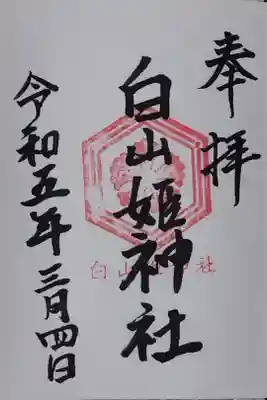 奉拝
白山姫神社
令和五年三月四日